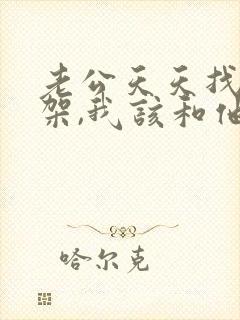 老公天天找
架,我該和他
哈尔克